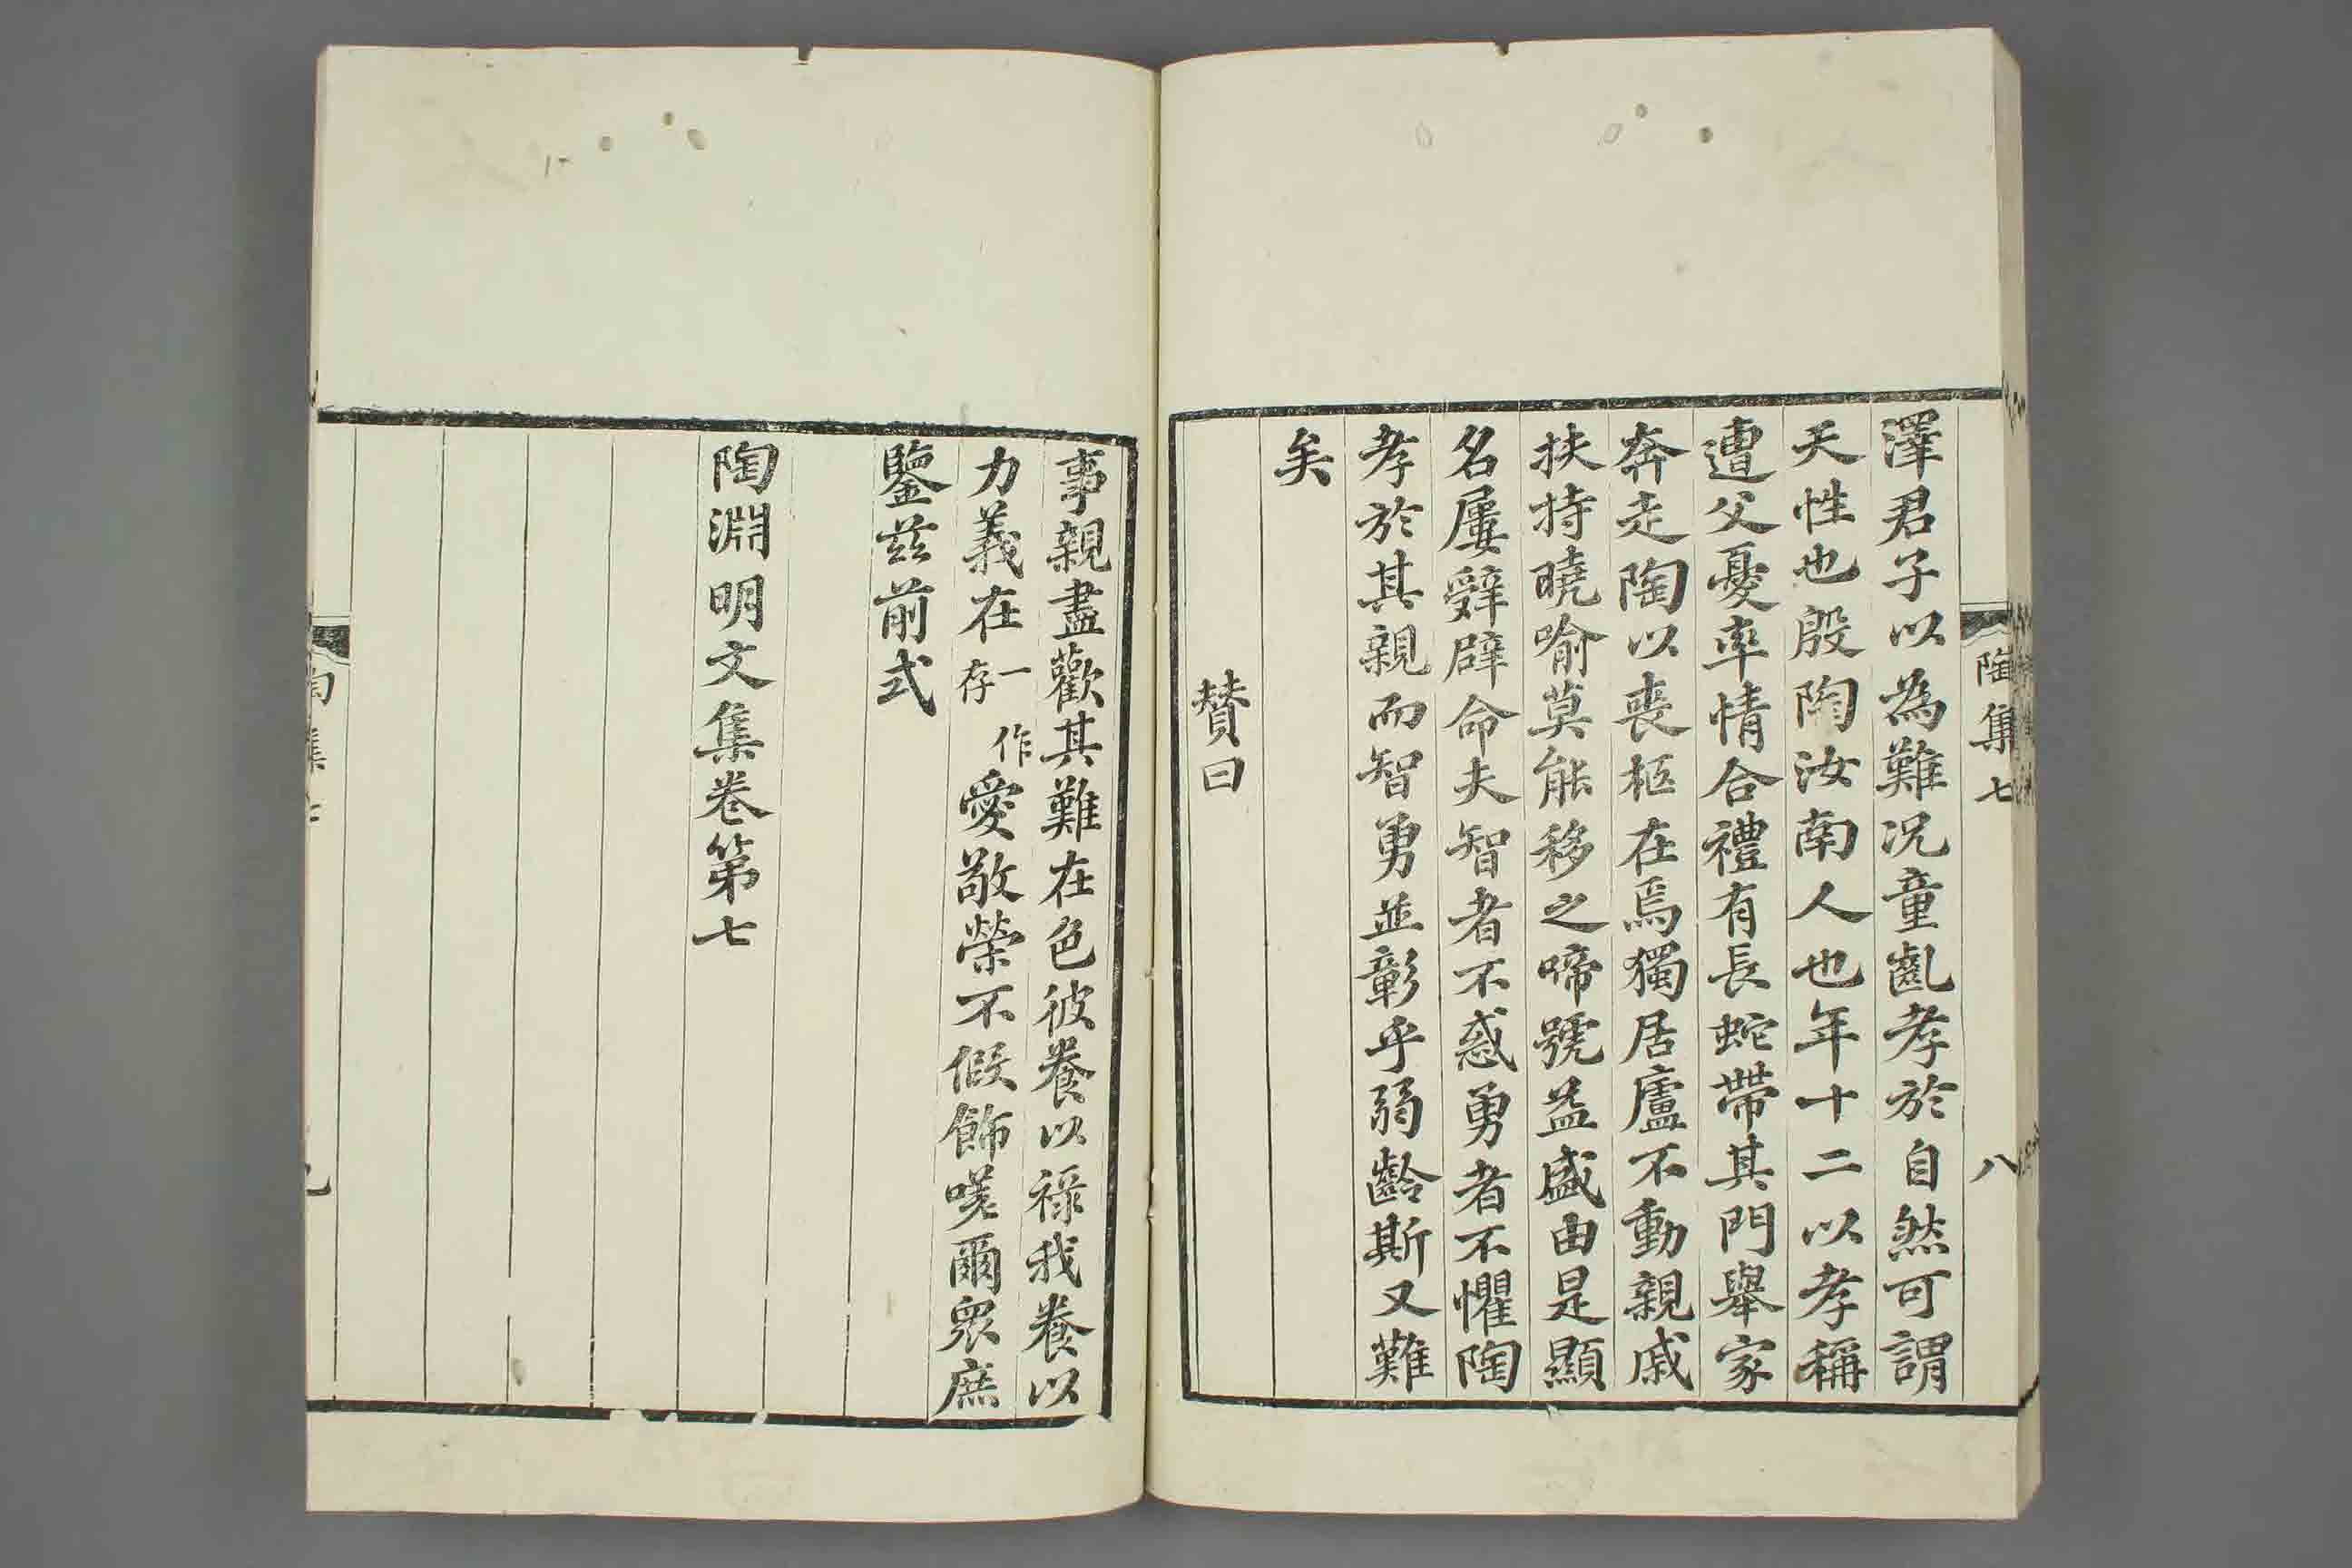 陶集七 八
澤君子以為難況童齓孝於自然可謂
天性也殷陶汝南人也年十二以孝稱
遭父憂率情合禮有長蛇帶其門舉家
奔走陶以喪柩在焉獨居廬不動親戚
扶持曉喻莫能移之啼號益盛由是顯
名屢辟辟命夫智者不惑勇者不懼陶
孝於其親而智勇並彰乎弱齡斯又難
矣
贊曰
事親盡歡其難在色彼養以祿我養以
力義在一作存愛敬榮不假飾嗟爾眾庶
鑒茲前式
陶淵明文集卷第七